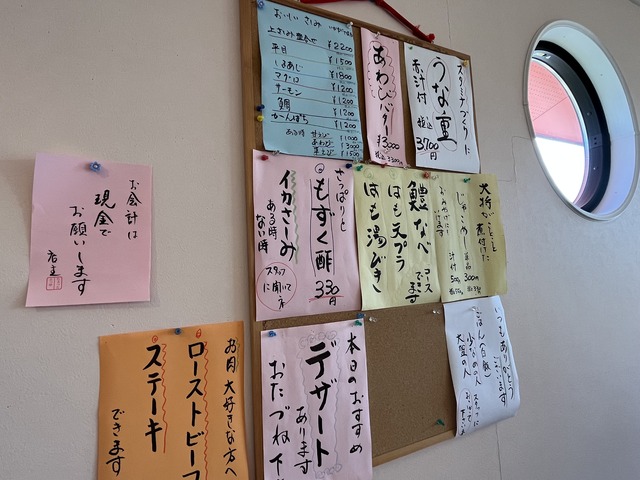 おいしい さしみ
上さしみ盛合せ ¥2200
平目 ¥1500
しまあじ ¥1800
マグロ ¥1200
サーモン ¥1200
鯛 ¥1200
かんぱち ¥1200
ある時
甘えび ¥1000
あわび ¥3000
¥1500
あわびバター
¥3000
税込 3300
スタミナづくりに
うな重
赤汁付 税込
3700円
さっぱりと
もずく酢
330円
イカさしみ
ある時
ない時
スタッフ
に聞いて
下
鱧なべ コース
できます
はも天プラ
はも湯びき
大将がことこと
煮付けた
じゃこめし 単品 300円
おみやげに
いけます
汁付 500円
いつもありがとう
ございます
ごはん(白飯)
少なめの人
大盛の人
スタッフに
お会計は
現金で
お願いします
店主
お肉大好きな方へ
ローストビーフ
ステーキ
できます
本日のおすすめ
デザート
あります
おたづね下